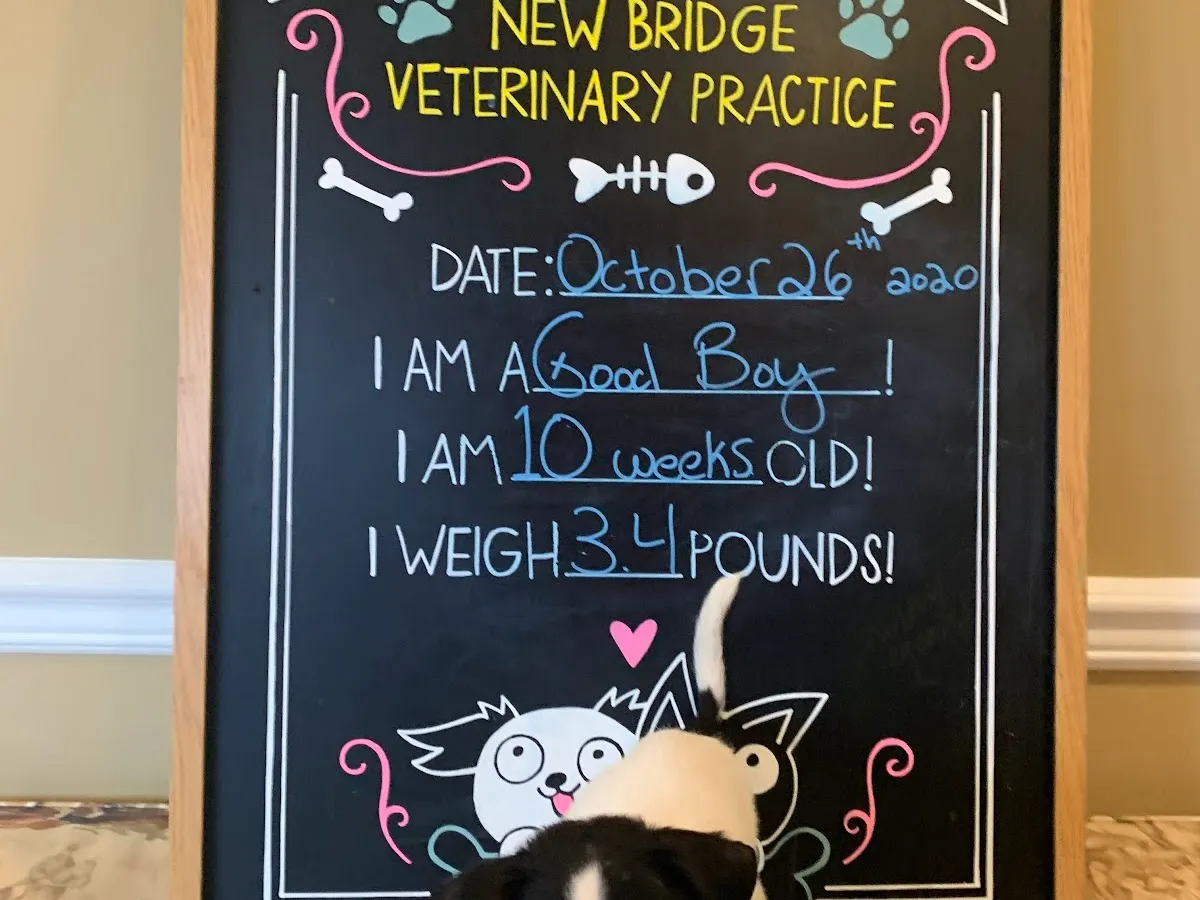 NEW BRIDGE
VETERINARY PRACTICE
DATE: October 26th 2020
I AM A Good Boy!
I AM 10 weeks OLD!
I WEIGH 3.4 POUNDS!